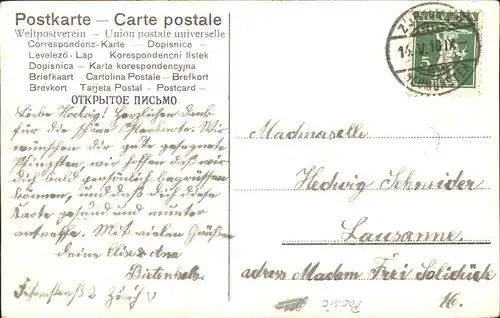 Postkarte — Carte postale
Weltpostverein - Union postale universelle
Correspondenz-Karte - Dopisnice -
Levelező-Lap - Korespondencni listek
Dopisnica - Karta korespondencyjna
Briefkaart - Cartolina Postale - Brefkort
Brevkort - Tarjeta Postal - Postcard -
ОТКРЫТОЕ ПИСЬМО
Liebe Hedwig! Herzlichen Dank
für die schöne Osterkarte. Wir
wünschen dir gute gesegnete
Pfingsten, wir hoffen daß wir
dich bald persönlich begrüssen
können, und daß dich diese
Karte gesund und munter
antreffe. Mit vielen Grüßen
deine Elise & Ana
Zürich V
5
Madmaselle
Hedwig Schneider
Lausanne.
adress Madam
16.
Poesie